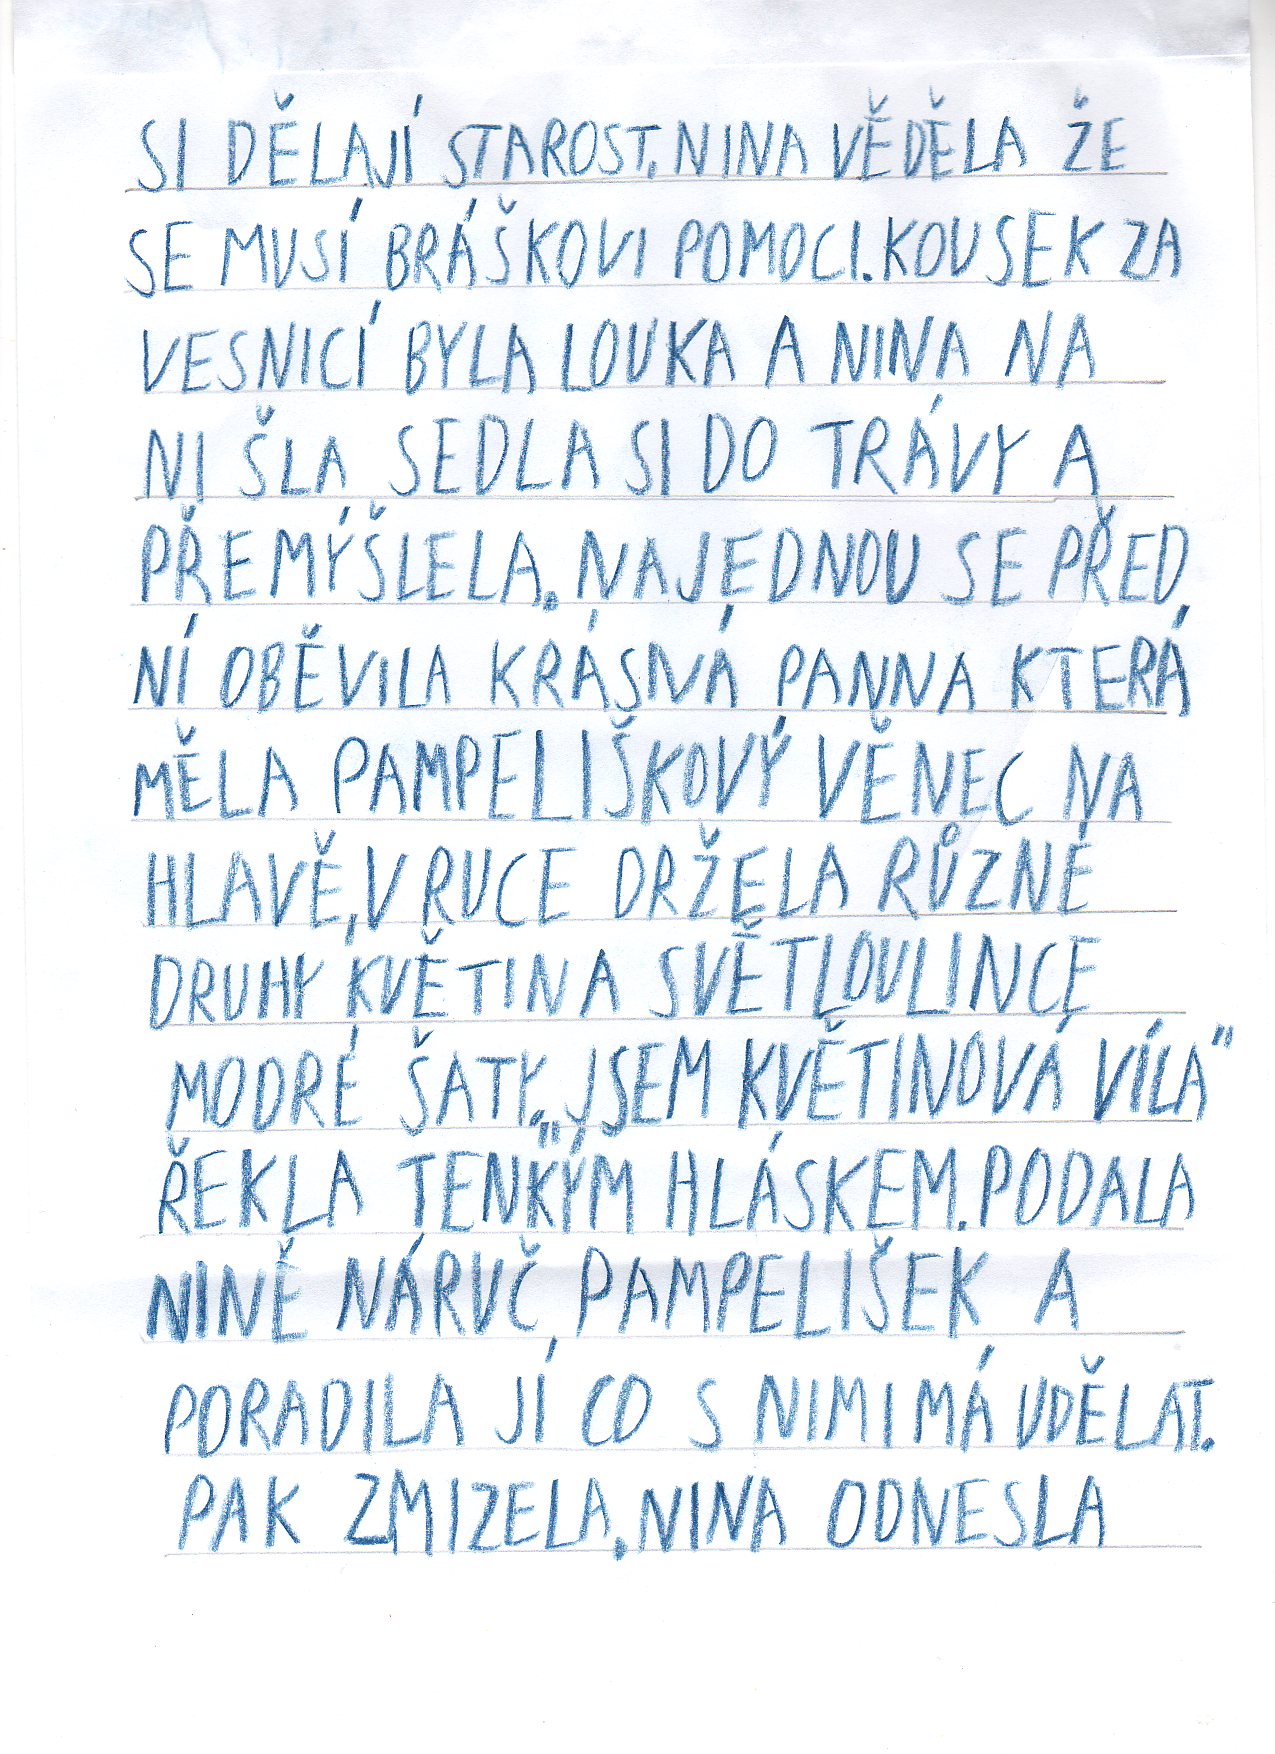 SI DĚLAJÍ STAROST. NINA VĚDĚLA ŽE
SE MUSÍ BRÁŠKOVI POMOCI. KOUSEK ZA
VESNICÍ BYLA LOUKA A NINA NA
NI ŠLA SEDLA SI DO TRÁVY A
PŘEMÝŠLELA. NAJEDNOU SE PŘED
NÍ OBĚVILA KRÁSNÁ PANNA KTERÁ
MĚLA PAMPELIŠKOVÝ VĚNEC NA
HLAVĚ, V RUCE DRŽELA RŮZNÉ
DRUHY KVĚTIN A SVĚTLOULINCE
MODRÉ ŠATY. „JSEM KVĚTINOVÁ VÍLA"
ŘEKLA TENKÝM HLÁSKEM. PODALA
NINĚ NÁRUČ PAMPELIŠEK A
PORADILA JÍ CO S NIMI MÁ UDĚLAT.
PAK ZMIZELA. NINA ODNESLA